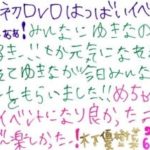 初DVDはっばいイベ
ああ!みんなにゆきなの
!!元気になあ
てゆきなが今日みんな
をもらいました!!めちゃ
イベントになり良かったー
ん楽しかったー!木下優樹菜 6